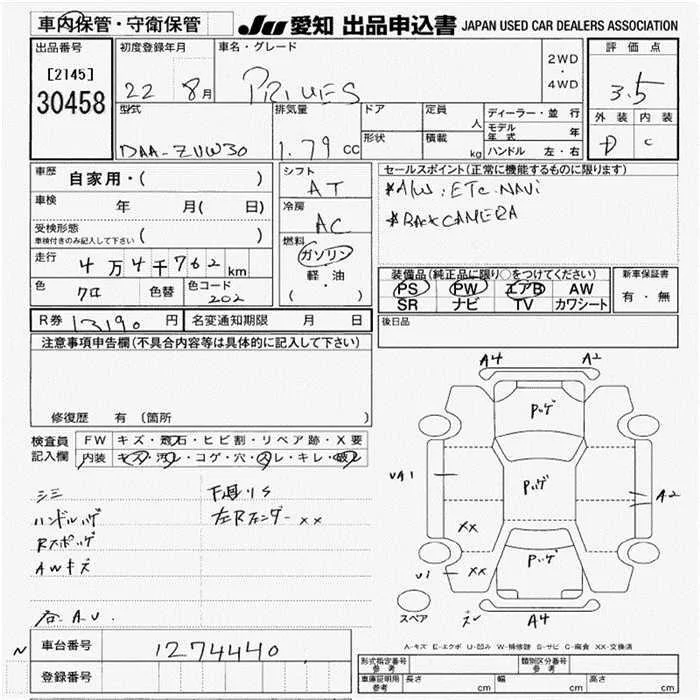 車内保管・守衛保管
JU 愛知 出品申込書 JAPAN USED CAR DEALERS ASSOCIATION
出品番号
[2145]
30458
初度登録年月
22 8月
車名・グレード
PRIUES
2WD
・
4WD
評価点
3.5
外装 内装
D C
型式
DAA-ZVW30
排気量
1.79 cc
ドア
形状
定員
人
積載
kg
ディーラー・並行
モデル年式 年
ハンドル 左・右
車歴 自家用・( )
車検 年 月( 日)
受検形態
車検付きのみ記入して下さい ( )
走行 4万4千762km
色 クロ 色替 色コード 202
シフト
AT
冷房
AC
燃料
ガソリン
軽・油
( )
セールスポイント(正常に機能するものに限ります)
*A/W.ETC.NAVi
*BACKCAMERA
装備品(純正品に限り○をつけてください)
PS PW エアB AW
SR ナビ TV カワシート
新車保証書
有・無
後日品
R券 13190円 名変通知期限 月 日
注意事項申告欄(不具合内容等は具体的に記入して下さい)
修復歴 有 (箇所 )
検査員記入欄
FW キズ・飛石・ヒビ割・リペア跡・X要
内装 キズ・汚レ・コゲ・穴・スレ・キレ・破レ
シミ
ハンドルハゲ
Rスポハゲ
AWキズ
下廻りS
左Rフェンダー xx
A4 A2
Pハゲ
Pハゲ
Pハゲ
UA1
A2
xx
U1 xx
A4
スペア
A-キズ E-エクボ U-凹み W-補修跡 S-サビ C-腐食 XX-交換済
車台番号 1274440
登録番号
形式指定番号 参考
類別区分番号 参考
車庫証明用 参考 長さ cm 幅 cm 高さ cm